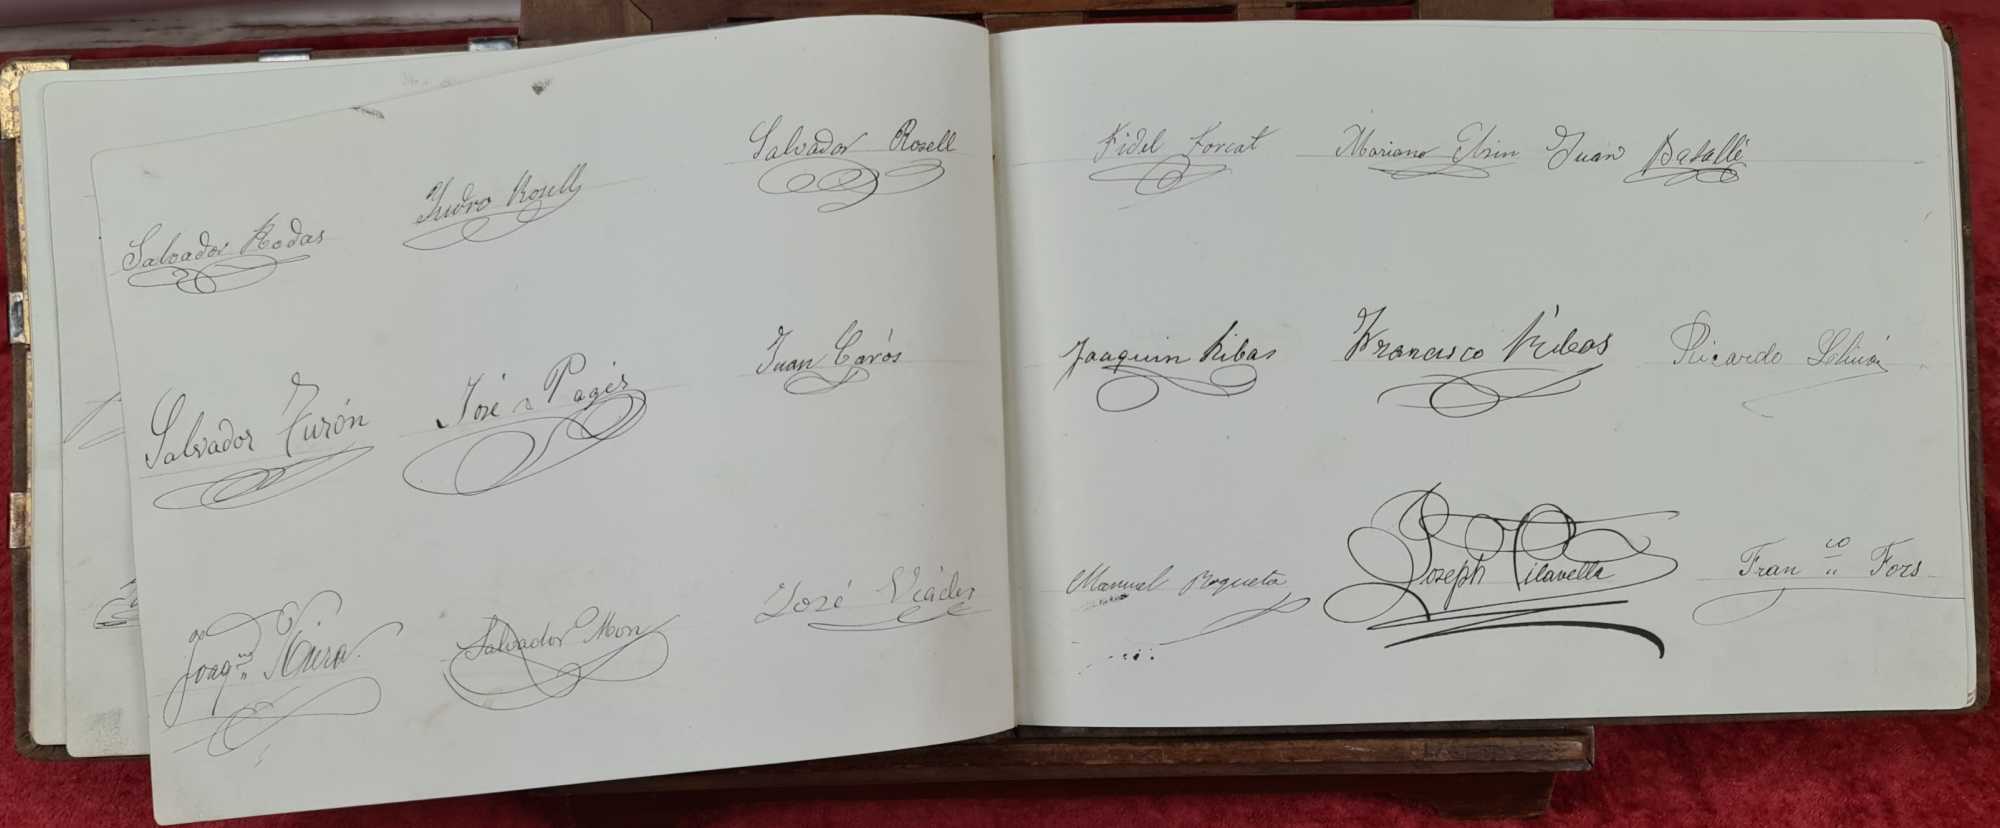 Salvador Rodas
Isidro Rosell
Salvador Rosell
Salvador Turón
José Pagés
Juan Carós
Joaqn Riera
Salvador Mon
José Viader
Fidel Forcat
Mariano Juan Batallé
Joaquin Ribas
Francisco Ribas
Ricardo
Manuel Roqueta
Joseph Vilavella
Franco Fors